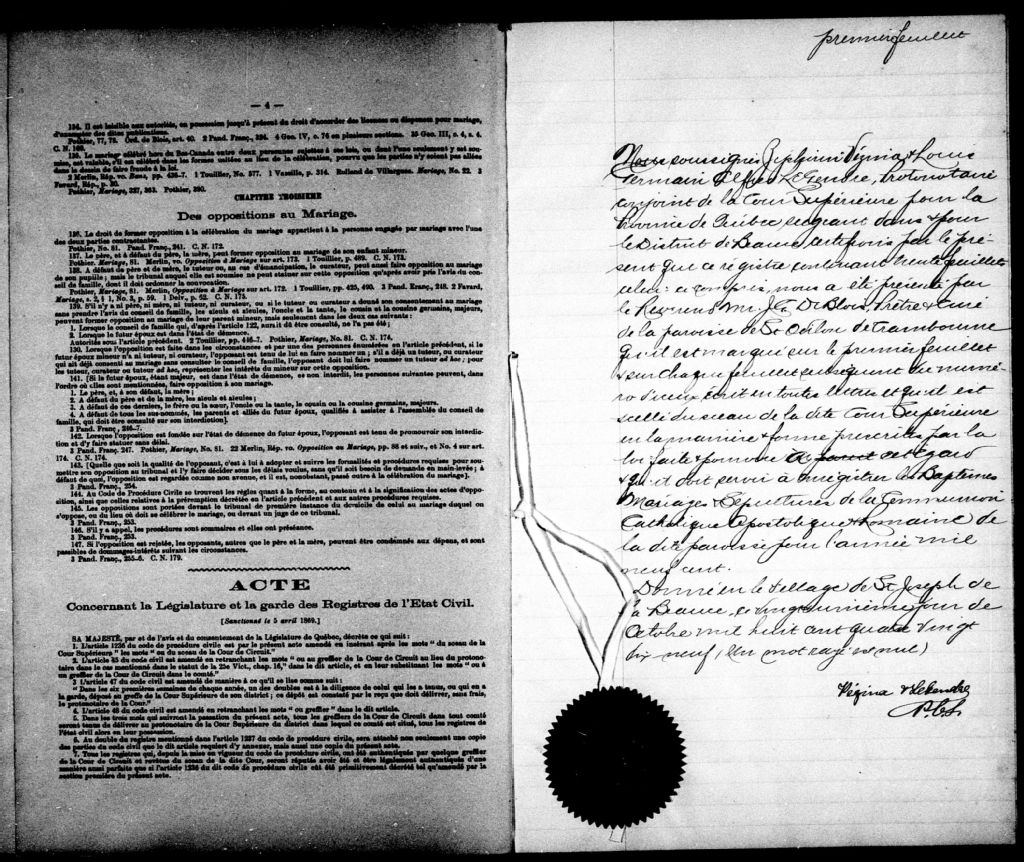 — 4 —
134. Il est loisible aux autorités, en possession jusqu'à présent du droit d'accorder des licences ou dispenses pour mariage,
d'exempter des dites publications.
Pothier, 77, 78. Ord. de Blois, art. 40. 2 Pand. Franç., 324. 4 Geo. IV, c. 76 en plusieurs sections. 35 Geo. III, s. 4, s. 4.
C. N. 169.
135. Le mariage célébré hors du Bas-Canada entre deux personnes sujettes à ses lois, ou dont l'une seulement y est soumise,
est valable, s'il est célébré dans les formes usitées au lieu de la célébration, pourvu que les parties n'y soient pas allées
dans le dessein de faire fraude à la loi.
2 Merlin, Rép. vo. Bans, pp. 436-7. 1 Touillier, No. 577. 1 Vazeille, p. 314. Rolland de Villargues, Mariage, No. 22. 3
Favard, Rép., p. 30.
Pothier, Mariage, 327, 363. Pothier, 280.
CHAPITRE TROISIEME
Des oppositions au Mariage.
136. Le droit de former opposition à la célébration du mariage appartient à la personne engagée par mariage avec l'une
des deux parties contractantes.
Pothier, No. 81. Pand. Franç., 241. C. N. 172.
137. Le père, et à défaut du père, la mère, peut former opposition au mariage de son enfant mineur.
Pothier, Mariage, 81. Merlin, vo. Opposition à Mariage sur art. 173. 1 Touillier, p. 489. C. N. 173.
138. A défaut de père et de mère, le tuteur ou, au cas d'émancipation, le curateur, peut aussi faire opposition au mariage
de son pupille ; mais le tribunal auquel elle est soumise ne peut statuer sur cette opposition qu'après avoir pris l'avis du conseil
de famille, dont il doit ordonner la convocation.
Pothier, Mariage, 81. Merlin, Opposition à Mariage sur art. 172. 1 Touillier, pp. 425, 490. 3 Pand. Franç., 248. 2 Favard,
Mariage, s. 2, § 1, No. 3, p. 59. 1 Delv., p. 62. C. N. 175.
139. S'il n'y a ni père, ni mère, ni tuteur, ni curateur, ou si le tuteur ou curateur a donné son consentement au mariage
sans prendre l'avis du conseil de famille, les aïeuls et aïeules, l'oncle et la tante, le cousin et la cousine germains, majeurs,
peuvent former opposition au mariage de leur parent mineur, mais seulement dans les deux cas suivants :
1. Lorsque le conseil de famille qui, d'après l'article 122, aurait dû être consulté, ne l'a pas été ;
2. Lorsque le futur époux est dans l'état de démence.
Autorités sous l'article précédent. 2 Touillier, pp. 446-7. Pothier, Mariage, No. 81. C. N. 174.
130. Lorsque l'opposition est faite dans les circonstances et par une des personnes énumérées en l'article précédent, si le
futur époux mineur n'a ni tuteur, ni curateur, l'opposant est tenu de lui en faire nommer un ; s'il a déjà un tuteur, ou curateur
qui ait déjà consenti au mariage sans consulter le conseil de famille, l'opposant doit lui faire nommer un tuteur ad hoc ; pour
les tuteur, curateur ou tuteur ad hoc, représenter les intérêts du mineur sur cette opposition.
141. [Si le futur époux, étant majeur, est dans l'état de démence, et non interdit, les personnes suivantes peuvent, dans
l'ordre où elles sont mentionnées, faire opposition à son mariage.
1. Le père, et à son défaut, la mère ;
2. A défaut du père et de la mère, les aïeuls et aïeules ;
3. A défaut de ces derniers, le frère ou la sœur, l'oncle ou la tante, le cousin ou la cousine germains, majeurs.
4. A défaut de tous les sus-nommés, les parents et alliés du futur époux, qualifiés à assister à l'assemblée du conseil de
famille, qui doit être consulté sur son interdiction].
3 Pand. Franç., 246-7.
142. Lorsque l'opposition est fondée sur l'état de démence du futur époux, l'opposant est tenu de promouvoir son interdiction
et d'y faire statuer sans délai.
3 Pand. Franç. 247. Pothier, Mariage, No. 81. 22 Merlin, Rép. vo. Opposition au Mariage, pp. 88 et suiv., et No. 4 sur art.
174. C. N. 174.
143. [Quelle que soit la qualité de l'opposant, c'est à lui à adopter et suivre les formalités et procédures requises pour soumettre
son opposition au tribunal et l'y faire décider sous les délais voulus, sans qu'il soit besoin de demande en main-levée ; à
défaut de quoi, l'opposition est regardée comme non avenue, et il est, nonobstant, passé outre à la célébration du mariage].
3 Pand. Franç., 254.
144. Au Code de Procédure Civile se trouvent les règles quant à la forme, au contenu et à la signification des actes d'opposition,
ainsi que celles relatives à la préremption décrétée en l'article précédent et aux autres procédures requises.
145. Les oppositions sont portées devant le tribunal de première instance du domicile de celui au mariage duquel on
s'oppose, ou du lieu où doit se célébrer le mariage, ou devant un juge de ce tribunal.
3 Pand. Franç., 253.
146. S'il y a appel, les procédures sont sommaires et elles ont préséance.
3 Pand. Franç., 253.
147. Si l'opposition est rejetée, les opposants, autres que le père et la mère, peuvent être condamnés aux dépens, et sont
passibles de dommages-intérêts suivant les circonstances.
3 Pand. Franç., 255-6. C. N. 179.
ACTE
Concernant la Législature et la garde des Registres de l'Etat Civil.
[Sanctionné le 5 avril 1869.]
SA MAJESTÉ, par et de l'avis et du consentement de la Législature de Québec, décrète ce qui suit :
1. L'article 1236 du code de procédure civile est par le présent acte amendé en insérant après les mots " du sceau de la
Cour Supérieure " les mots " ou du sceau de la Cour de Circuit."
2. L'article 45 du code civil est amendé en retranchant les mots " ou au greffier de la Cour de Circuit au lieu du protonotaire
dans le cas mentionné dans le statut de la 25e Vict., chap. 16," dans le dit article, et en leur substituant les mots " ou à
un greffier de la Cour de Circuit dans le comté."
3 L'article 47 du code civil est amendé de manière à ce qu'il se lise comme suit :
" Dans les six premières semaines de chaque année, un des doubles est à la diligence de celui qui les a tenus, ou qui en a
la garde, déposé au greffe de la Cour Supérieure de son district ; ce dépôt est constaté par le reçu que doit délivrer, sans frais,
le protonotaire de la Cour."
4. L'article 48 du code civil est amendé en retranchant les mots " ou greffier " dans le dit article.
5. Dans les trois mois qui suivront la passation du présent acte, tous les greffiers de la Cour de Circuit dans tout comté
seront tenus de délivrer au protonotaire de la Cour Supérieure du district dans lequel ce comté est situé, tous les registres de
l'état civil alors en leur possession.
6. Au double du registre mentionné dans l'article 1237 du code de procédure civile, sera attaché non seulement une copie
des parties du code civil que le dit article requiert d'y annexer, mais aussi une copie du présent acte.
7. Tous les registres qui, depuis la mise en vigueur du code de procédure civile, ont été authentiqués par quelque greffier
de la Cour de Circuit et revêtus du sceau de la dite Cour, seront réputés avoir été et être légalement authentiqués d'une
manière aussi parfaite que si l'article 1236 du dit code de procédure civile eût été primitivement décrété tel qu'amendé par la
section première du présent acte.
premier feuillet
Nous soussignés Zéphirin Vézina & Louis
Germain Alfred LeGendre, Protonotaire
conjoint de la Cour Supérieure pour la
Province de Québec, siégeant dans & pour
le District de Beauce, certifions par le pré-
sent que ce régistre contenant trente feuillets
celui-ci compris, nous a été présenté par
le Révérend Mr J. E. DeBlois, Prêtre & curé
de la paroisse de St Odilon de Cranbourne
qu'il est marqué sur le premier feuillet
& sur chaque feuillet subséquent du numé-
ro d'iceux écrit en toutes lettres et qu'il est
scellé du sceau de la dite Cour Supérieure
en la manière & forme prescrites par la
loi faite & pourvue à cet égard
& qu'il doit servir à enrégistrer les Baptêmes
Mariages & Sépultures de la Communion
Catholique Apostolique & Romaine de
la dite paroisse pour l'année mil
neuf cent.
Donné en le village de St Joseph de
la Beauce, ce vingt unième jour de
Octobre mil huit cent quatre vingt
dix-neuf, (Un mot rayé est nul)
Vézina & LeGendre
P.C.S.